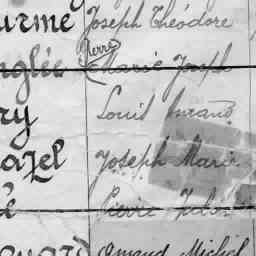 urme Joseph Théodore
Pierre
nglis Marie Joseph
ry Louis
azel Joseph Marie
é Pierre Jules
Amand Michel